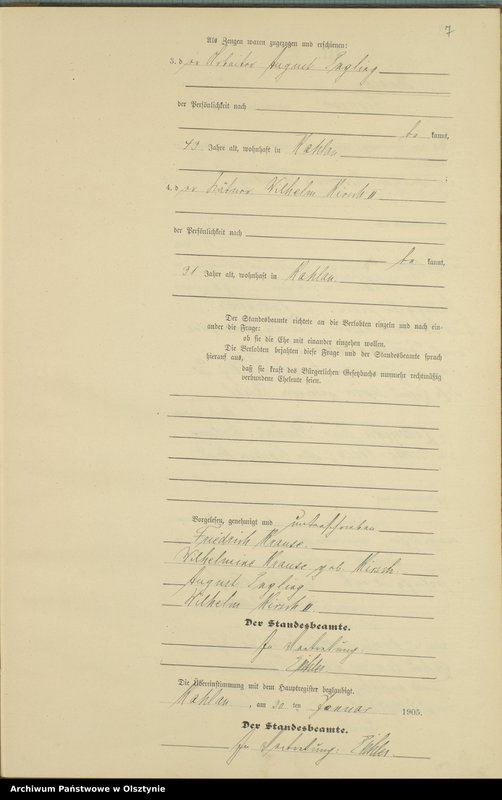 7
Als Zeugen waren zugezogen und erschienen:
3. der Arbeiter August Tagling
der Persönlichkeit nach
be kannt,
43 Jahre alt, wohnhaft in Kahlau
4. der Kätner Wilhelm Kirsch II
der Persönlichkeit nach
be kannt,
31 Jahre alt, wohnhaft in Kahlau
Der Standesbeamte richtete an die Verlobten einzeln und nach ein-
ander die Frage:
ob sie die Ehe mit einander eingehen wollen.
Die Verlobten bejahten diese Frage und der Standesbeamte sprach
hierauf aus,
daß sie kraft des Bürgerlichen Gesetzbuchs nunmehr rechtmäßig
verbundene Eheleute seien.
Vorgelesen, genehmigt und unterschrieben
Friedrich Krause.
Wilhelmine Krause geb. Kirsch
August Tagling
Wilhelm Kirsch II.
Der Standesbeamte.
In Vertretung:
Die Übereinstimmung mit dem Hauptregister beglaubigt.
Kahlau, am 30 ten Januar 1905.
Der Standesbeamte.
In Vertretung:
Archiwum Państwowe w Olsztynie